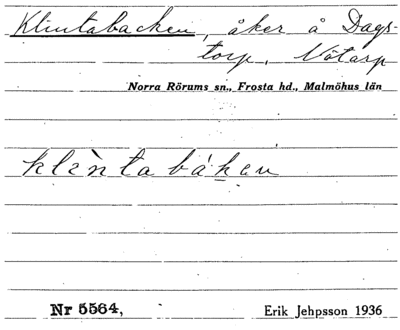 Klintabacken, åker å Dags-
torp, Nötarp
Norra Rörums sn., Frosta hd., Malmöhus län
klìnta bákan
Nr 5564,
Erik Jehpsson 1936